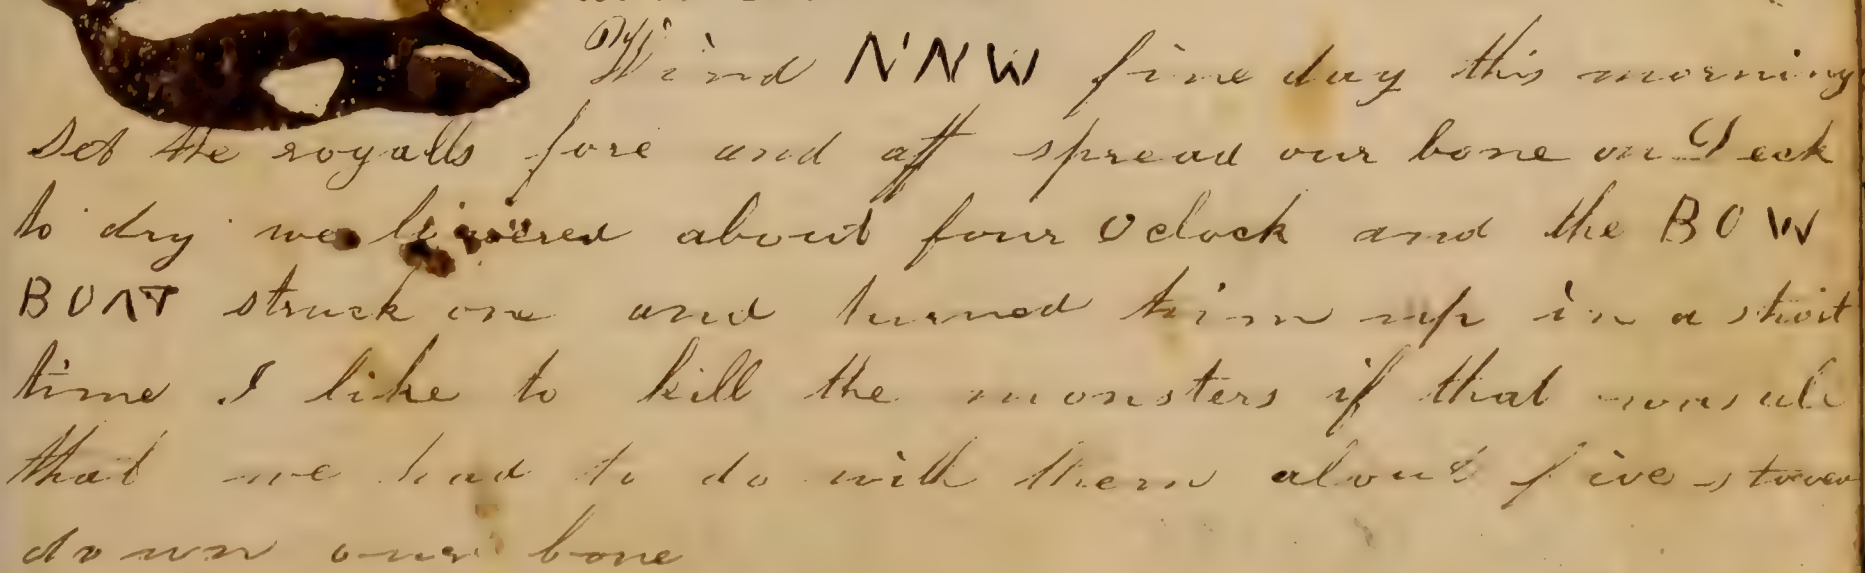 Wind NNW fine day this morning
Set the royalls fore and aft spread our bone on Deck
to dry we lowered about four Oclock and the BOW
BOAT struck one and turned him up in a short
time I like to kill the monsters if that was all
that we had to do with them about five stowed
down our bone